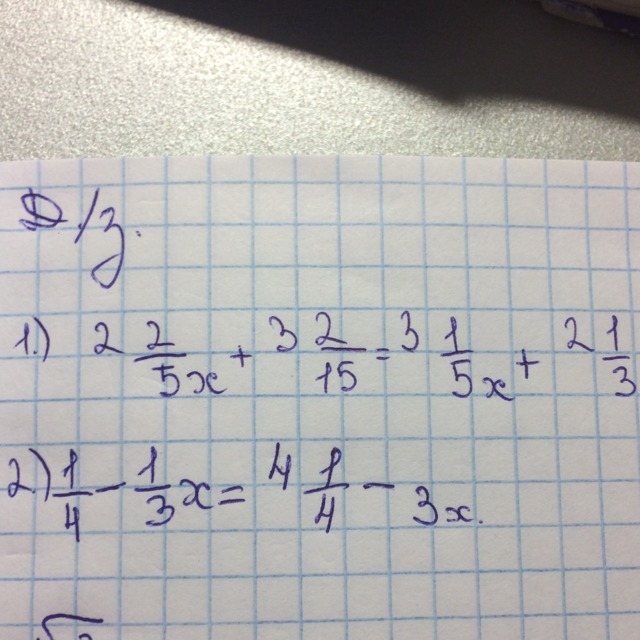 Д/з.
1.) 2 2/5 x + 3 2/15 = 3 1/5 x + 2 1/3
2.) 1/4 - 1/3 x = 4 1/4 - 3x.